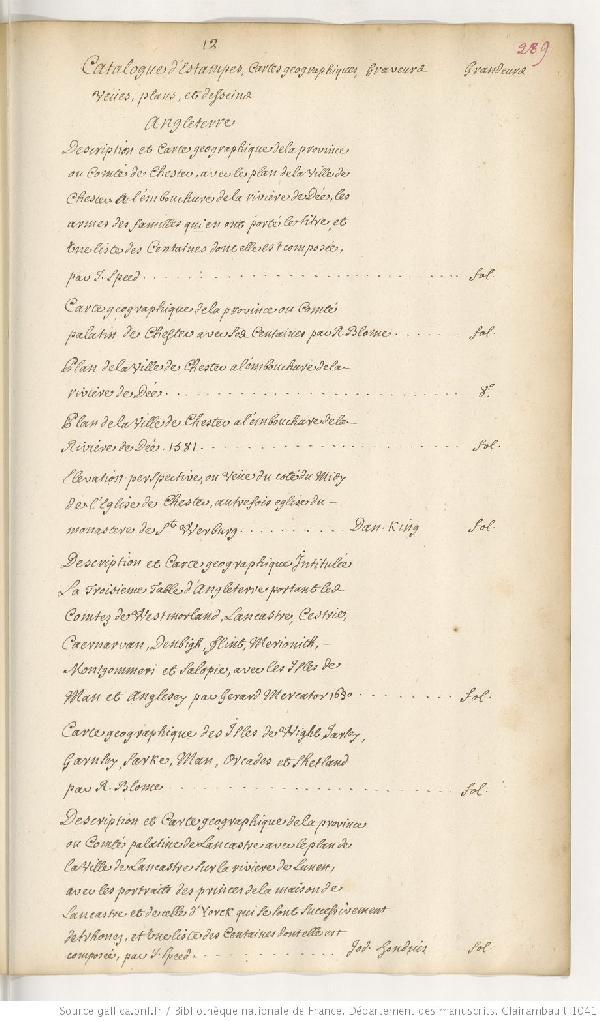 12
289
Catalogue d'Estampes, Cartes geographiques, Graveurs Grandeurs
Veües, plans, et desseins
Angleterre
Description et Carte geographique de la province
ou Comté de Chester, avec le plan de la Ville de
Chester à l'embouchure de la riviere de Dée, les
armes des familles qui en ont porté le titre, et
une liste des Centaines dont elle est composée,
par J. Speed . . . . . . . . . . fol.
Carte geographique de la province ou Comté
palatin de Chester avec ses Centaines par R. Blome . . . . . fol.
Plan de la Ville de Chester a l'embouchure de la
riviere de Dée . . . . . . . . . . 8.°
Plan de la Ville de Chester a l'embouchure de la
Riviere de Dée. 1581 . . . . . . . . . . fol.
Elevation perspective, ou Veüe du coté du Midy
de l'Eglise de Chester, autrefois eglise du
monastere de Ste Werburg . . . . . . . . . Dan. King fol.
Description et Carte geographique Intitulée
La Troisieme Table d'Angleterre portant les
Comtez de Westmorland, Lancastre, Cestrie,
Caernarvan, Denbigh, flint, Merionith,
Montgommeri et Salopie, avec les Isles de
Man et Anglesey par Gerard Mercator 1630 . . . . . . . fol.
Carte geographique des Isles de Wight, Jarsey,
Garnsey, Sarke, Man, Orcades et Shetland
par R. Blome . . . . . . . . . . fol.
Description et Carte geographique de la province
ou Comté palatine de Lancastre avec le plan de
la Ville de Lancastre sur la riviere de Lunen,
avec les portraits des princes de la maison de
Lancastre et de celle d'Yorck qui se sont successivement
detrhonez, et une liste des Centaines dont elle est
composée, par J. Speed . . . . . . . . . Jod. Hondius fol.
Source gallica.bnf.fr / Bibliothèque nationale de France. Département des manuscrits. Clairambault 1041